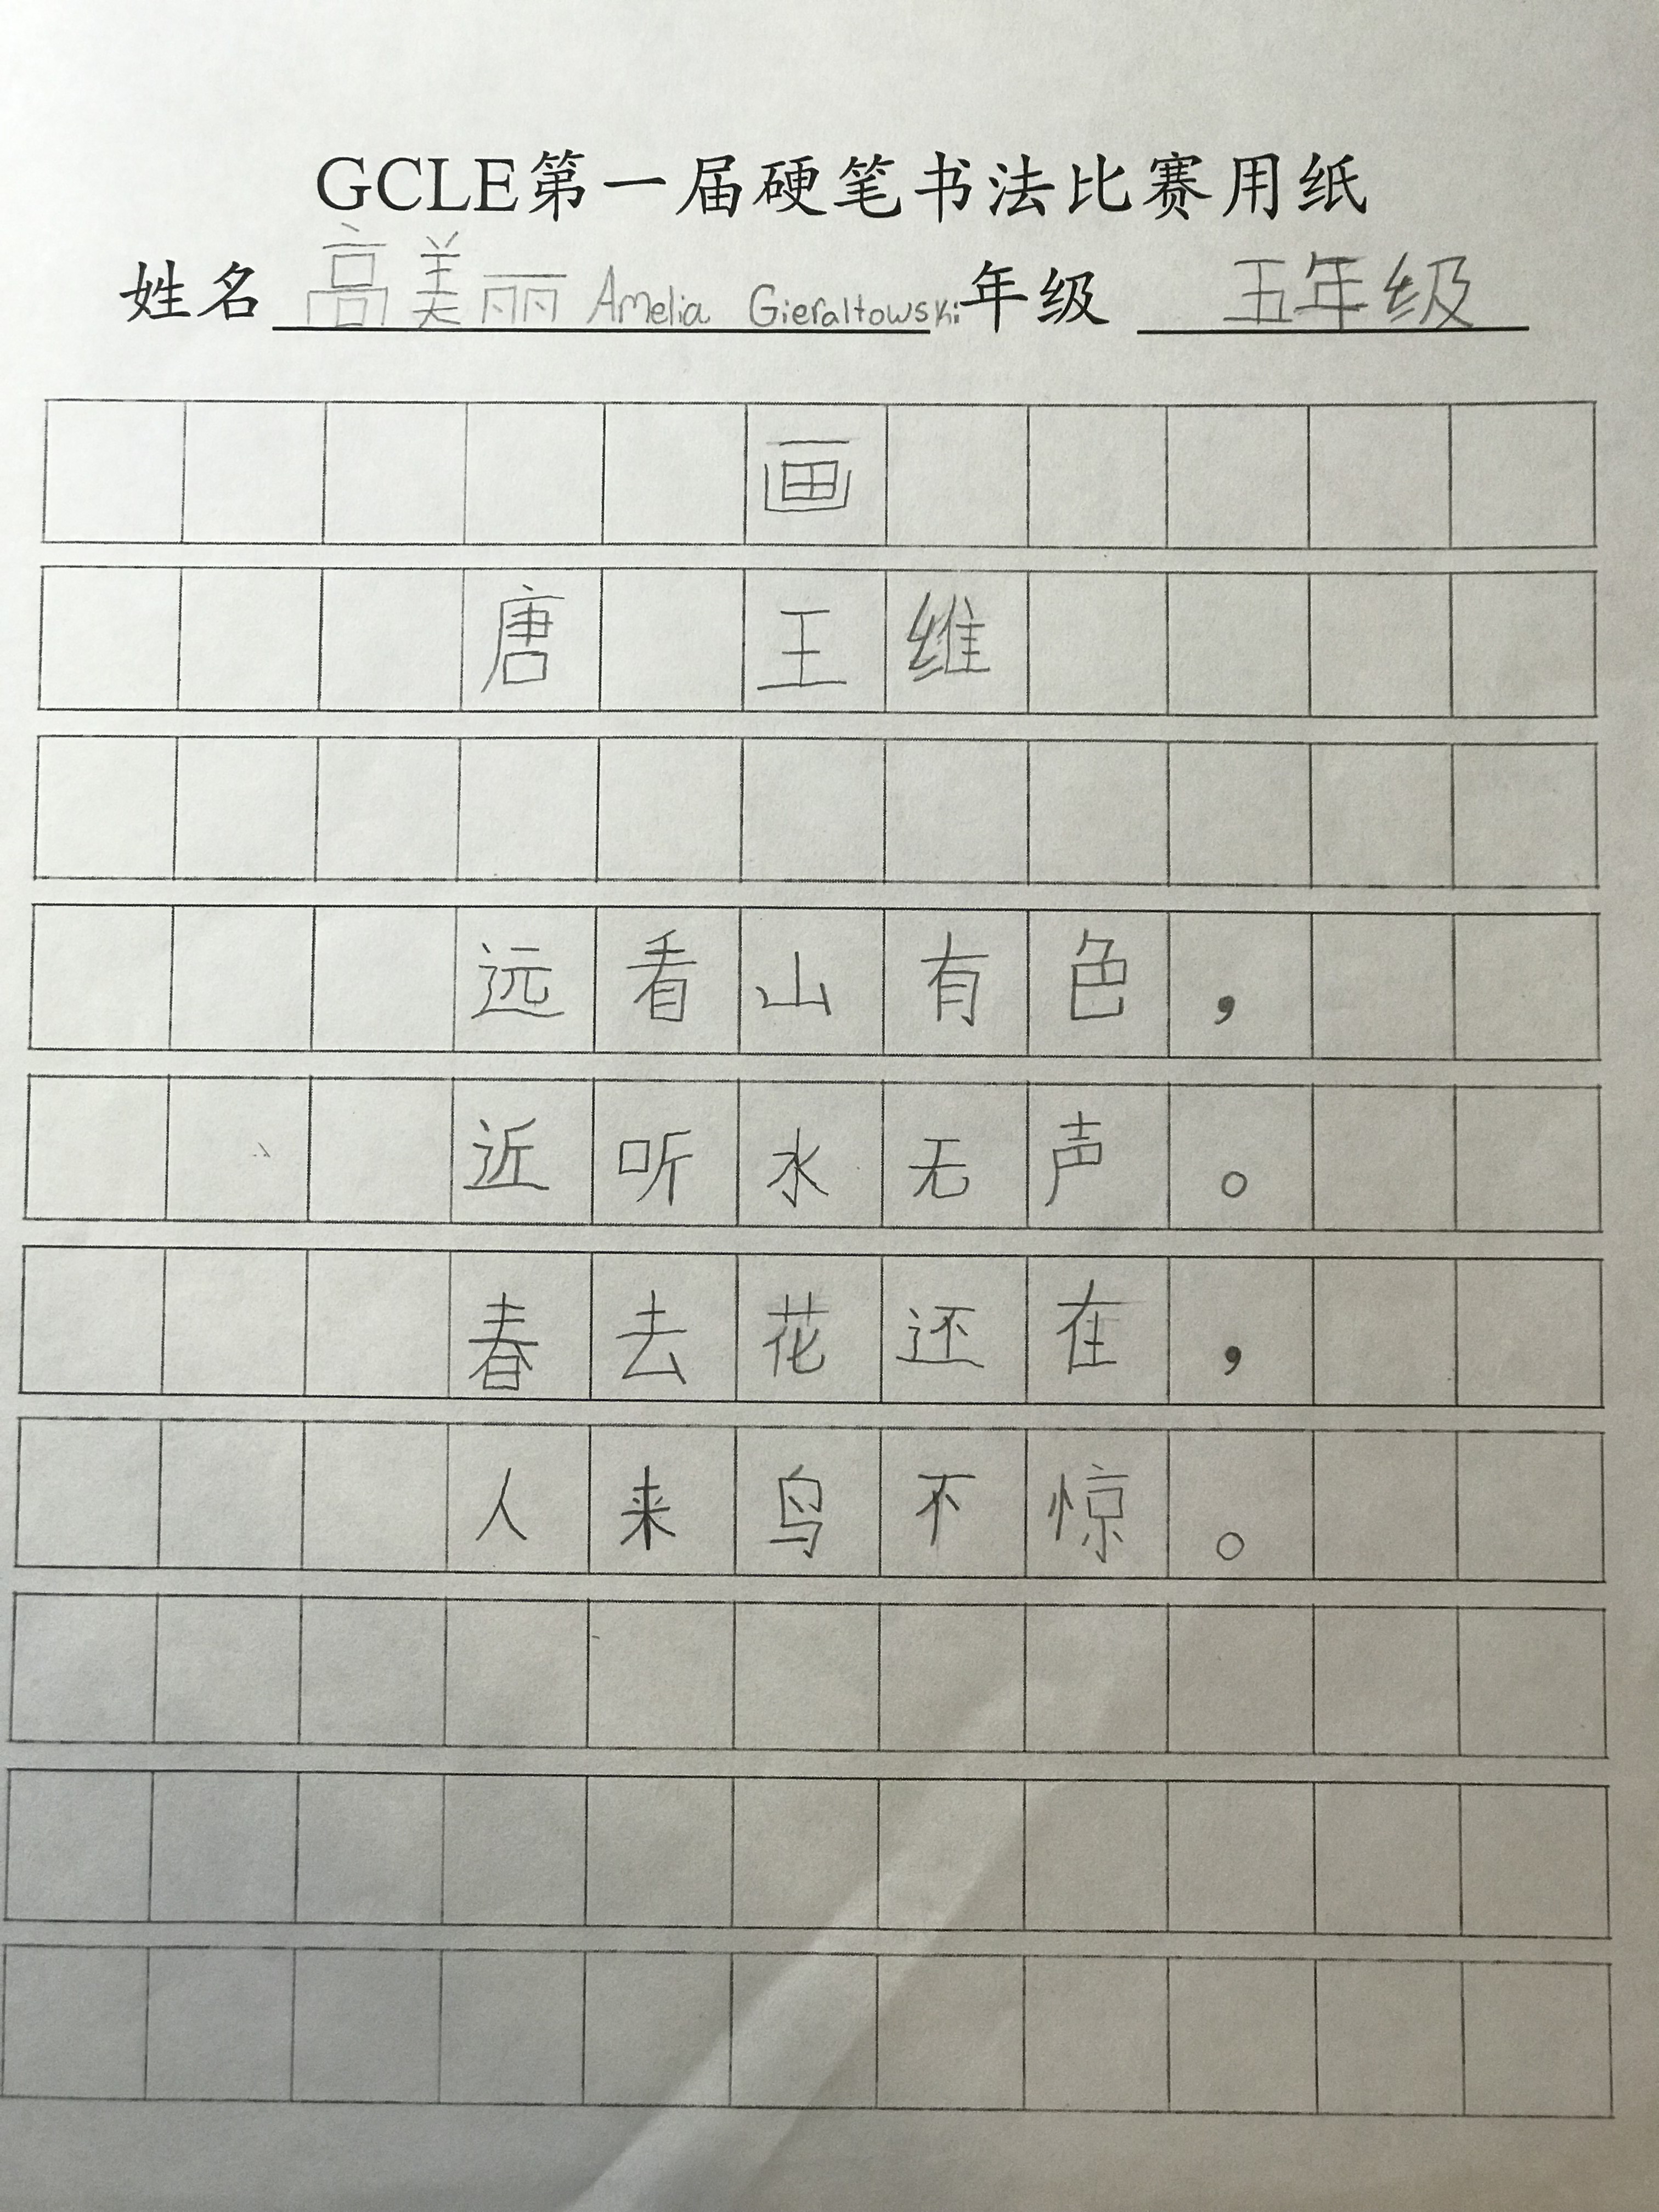 GCLE第一届硬笔书法比赛用纸
姓名 高美丽 Amelia Gieraltowski 年级 五年级
画
唐 王维
远看山有色，
近听水无声。
春去花还在，
人来鸟不惊。